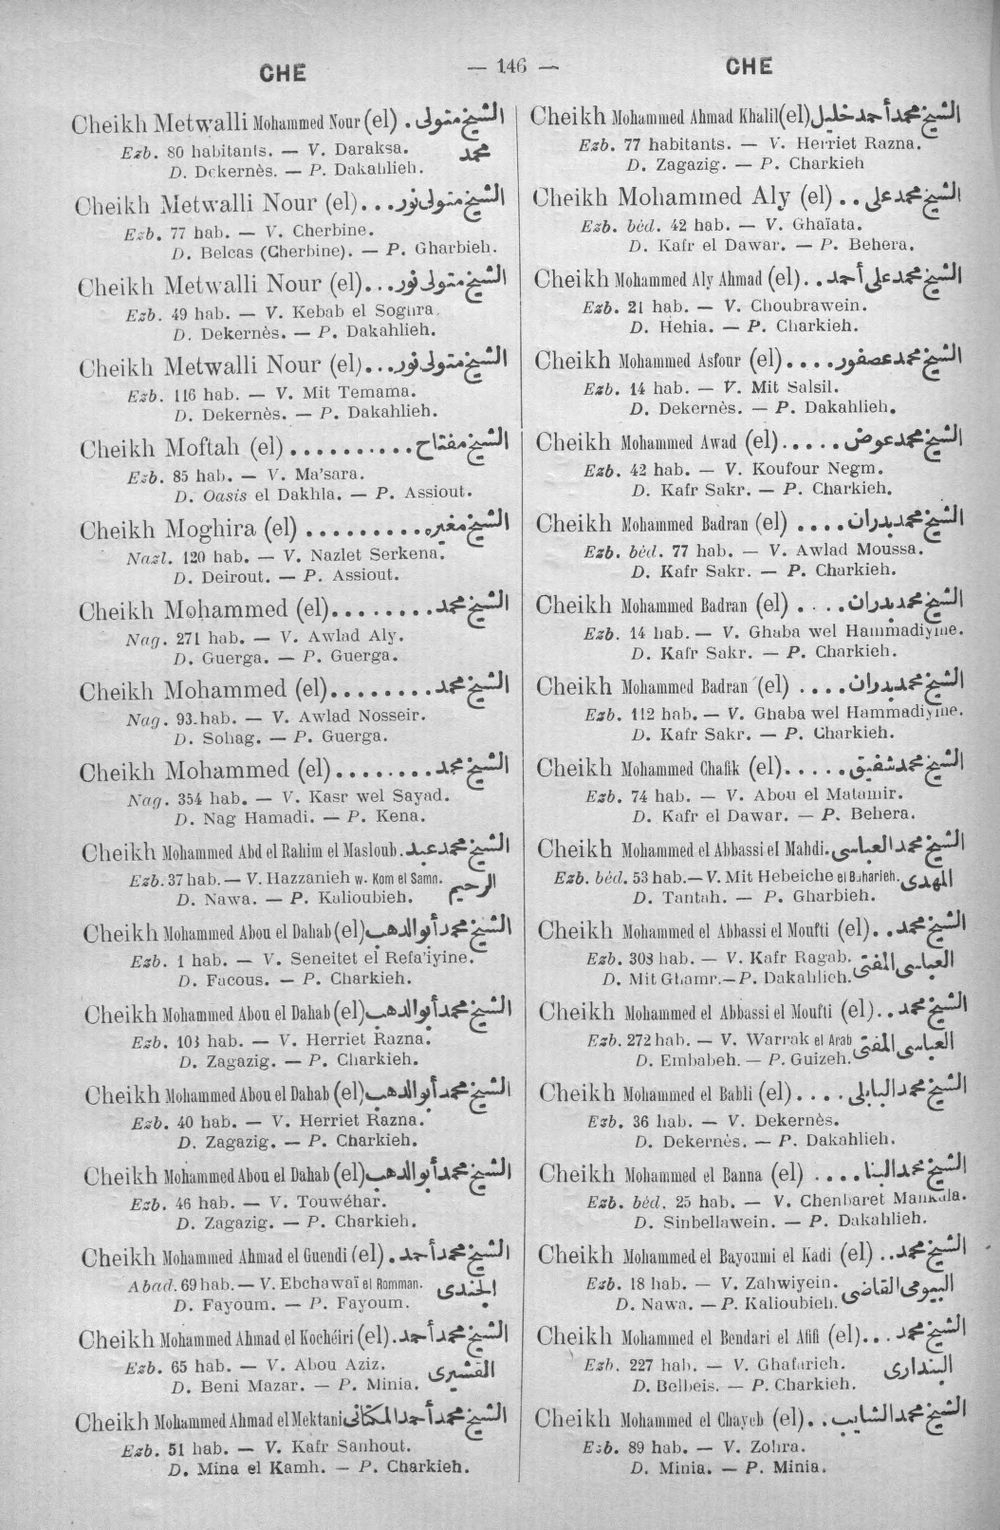 CHE — 146 — CHE
Cheikh Metwalli Mohammed Nour (el) . الشيخ متولى
Ezb. 80 habitants. — V. Daraksa. محمد
D. Dekernès. — P. Dakahlieh.
Cheikh Metwalli Nour (el)... الشيخ متولى نور
Ezb. 77 hab. — V. Cherbine.
D. Belcas (Cherbine). — P. Gharbieh.
Cheikh Metwalli Nour (el)... الشيخ متولى نور
Ezb. 49 hab. — V. Kebab el Soghra.
D. Dekernès. — P. Dakahlieh.
Cheikh Metwalli Nour (el)... الشيخ متولى نور
Ezb. 116 hab. — V. Mit Temama.
D. Dekernès. — P. Dakahlieh.
Cheikh Moftah (el) .......... الشيخ مفتاح
Ezb. 85 hab. — V. Ma'sara.
D. Oasis el Dakhla. — P. Assiout.
Cheikh Moghira (el) ......... الشيخ مغيره
Nazl. 120 hab. — V. Nazlet Serkena.
D. Deirout. — P. Assiout.
Cheikh Mohammed (el)........ الشيخ محمد
Nag. 271 hab. — V. Awlad Aly.
D. Guerga. — P. Guerga.
Cheikh Mohammed (el)........ الشيخ محمد
Nag. 93.hab. — V. Awlad Nosseir.
D. Sohag. — P. Guerga.
Cheikh Mohammed (el)........ الشيخ محمد
Nag. 354 hab. — V. Kasr wel Sayad.
D. Nag Hamadi. — P. Kena.
Cheikh Mohammed Abd el Rahim el Masloub. الشيخ محمد عبد
Ezb. 37 hab. — V. Hazzanieh w. Kom el Samn. الرحيم
D. Nawa. — P. Kalioubieh.
Cheikh Mohammed Abou el Dahab (el) الشيخ محمد أبو الدهب
Ezb. 1 hab. — V. Seneitet el Refa'iyine.
D. Facous. — P. Charkieh.
Cheikh Mohammed Abou el Dahab (el) الشيخ محمد أبو الدهب
Ezb. 103 hab. — V. Herriet Razna.
D. Zagazig. — P. Charkieh.
Cheikh Mohammed Abou el Dahab (el) الشيخ محمد أبو الدهب
Ezb. 40 hab. — V. Herriet Razna.
D. Zagazig. — P. Charkieh.
Cheikh Mohammed Abou el Dahab (el) الشيخ محمد أبو الدهب
Ezb. 46 hab. — V. Touwéhar.
D. Zagazig. — P. Charkieh.
Cheikh Mohammed Ahmad el Guendi (el) . الشيخ محمد أحمد
Abad. 69 hab. — V. Ebchawaï el Romman. الجندى
D. Fayoum. — P. Fayoum.
Cheikh Mohammed Ahmad el Kochéiri (el). الشيخ محمد أحمد
Ezb. 65 hab. — V. Abou Aziz. القشيرى
D. Beni Mazar. — P. Minia.
Cheikh Mohammed Ahmad el Mektani الشيخ محمد أحمد المكتانى
Ezb. 51 hab. — V. Kafr Sanhout.
D. Mina el Kamh. — P. Charkieh.
Cheikh Mohammed Ahmad Khalil (el) الشيخ محمد أحمد خليل
Ezb. 77 habitants. — V. Herriet Razna.
D. Zagazig. — P. Charkieh
Cheikh Mohammed Aly (el) .. الشيخ محمد على
Ezb. béd. 42 hab. — V. Ghaïata.
D. Kafr el Dawar. — P. Behera.
Cheikh Mohammed Aly Ahmad (el) .. الشيخ محمد على أحمد
Ezb. 21 hab. — V. Choubrawein.
D. Hehia. — P. Charkieh.
Cheikh Mohammed Asfour (el).... الشيخ محمد عصفور
Ezb. 14 hab. — V. Mit Salsil.
D. Dekernès. — P. Dakahlieh.
Cheikh Mohammed Awad (el)..... الشيخ محمد عوض
Ezb. 42 hab. — V. Koufour Negm.
D. Kafr Sakr. — P. Charkieh.
Cheikh Mohammed Badran (el) .... الشيخ محمد بدران
Ezb. béd. 77 hab. — V. Awlad Moussa.
D. Kafr Sakr. — P. Charkieh.
Cheikh Mohammed Badran (el) .... الشيخ محمد بدران
Ezb. 14 hab. — V. Ghaba wel Hammadiyine.
D. Kafr Sakr. — P. Charkieh.
Cheikh Mohammed Badran (el) .... الشيخ محمد بدران
Ezb. 112 hab. — V. Ghaba wel Hammadiyine.
D. Kafr Sakr. — P. Charkieh.
Cheikh Mohammed Chafik (el)..... الشيخ محمد شفيق
Ezb. 74 hab. — V. Abou el Matamir.
D. Kafr el Dawar. — P. Behera.
Cheikh Mohammed el Abbassi el Mahdi. الشيخ محمد العباسى
Ezb. béd. 53 hab. — V. Mit Hebeiche el Baharieh. المهدى
D. Tantah. — P. Gharbieh.
Cheikh Mohammed el Abbassi el Moufti (el).. الشيخ محمد
Ezb. 303 hab. — V. Kafr Ragab. العباسى المفتى
D. Mit Ghamr. — P. Dakahlieh.
Cheikh Mohammed el Abbassi el Moufti (el).. الشيخ محمد
Ezb. 272 hab. — V. Warrak el Arab العباسى المفتى
D. Embabeh. — P. Guizeh.
Cheikh Mohammed el Babli (el) .... الشيخ محمد البابلى
Ezb. 36 hab. — V. Dekernès.
D. Dekernès. — P. Dakahlieh.
Cheikh Mohammed el Banna (el) .... الشيخ محمد البنا
Ezb. béd. 25 hab. — V. Chenbaret Mankala.
D. Sinbellawein. — P. Dakahlieh.
Cheikh Mohammed el Bayoumi el Kadi (el) .. الشيخ محمد
Ezb. 18 hab. — V. Zahwiyein. البيومى القاضى
D. Nawa. — P. Kalioubieh.
Cheikh Mohammed el Bendari el Afifi (el)... الشيخ محمد
Ezb. 227 hab. — V. Ghafarieh. البندارى
D. Belbeis. — P. Charkieh.
Cheikh Mohammed el Chayeb (el).. الشيخ محمد الشايب
Ezb. 89 hab. — V. Zohra.
D. Minia. — P. Minia.